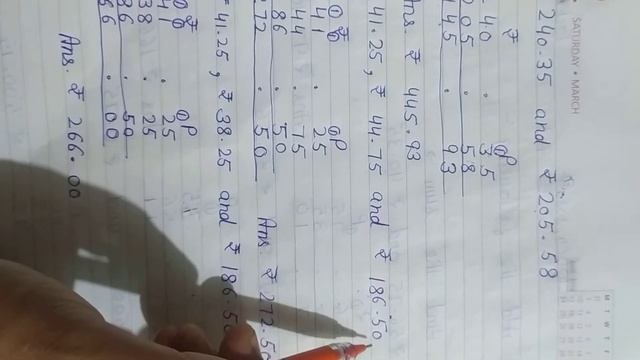 SATURDAY • MARCH
240.35 and ₹ 205.58
₹ P
40 . 35
205 . 58
45 . 93
Ans. ₹ 445.93
41.25, ₹ 44.75 and ₹ 186.50
₹ P
41 . 25
44 . 75
86 . 50
72 . 50
Ans. ₹ 272.50
₹ 41.25, ₹ 38.25 and ₹ 186.50
₹ P
41 . 25
38 . 25
86 . 50
66 . 00
Ans. ₹ 266.00